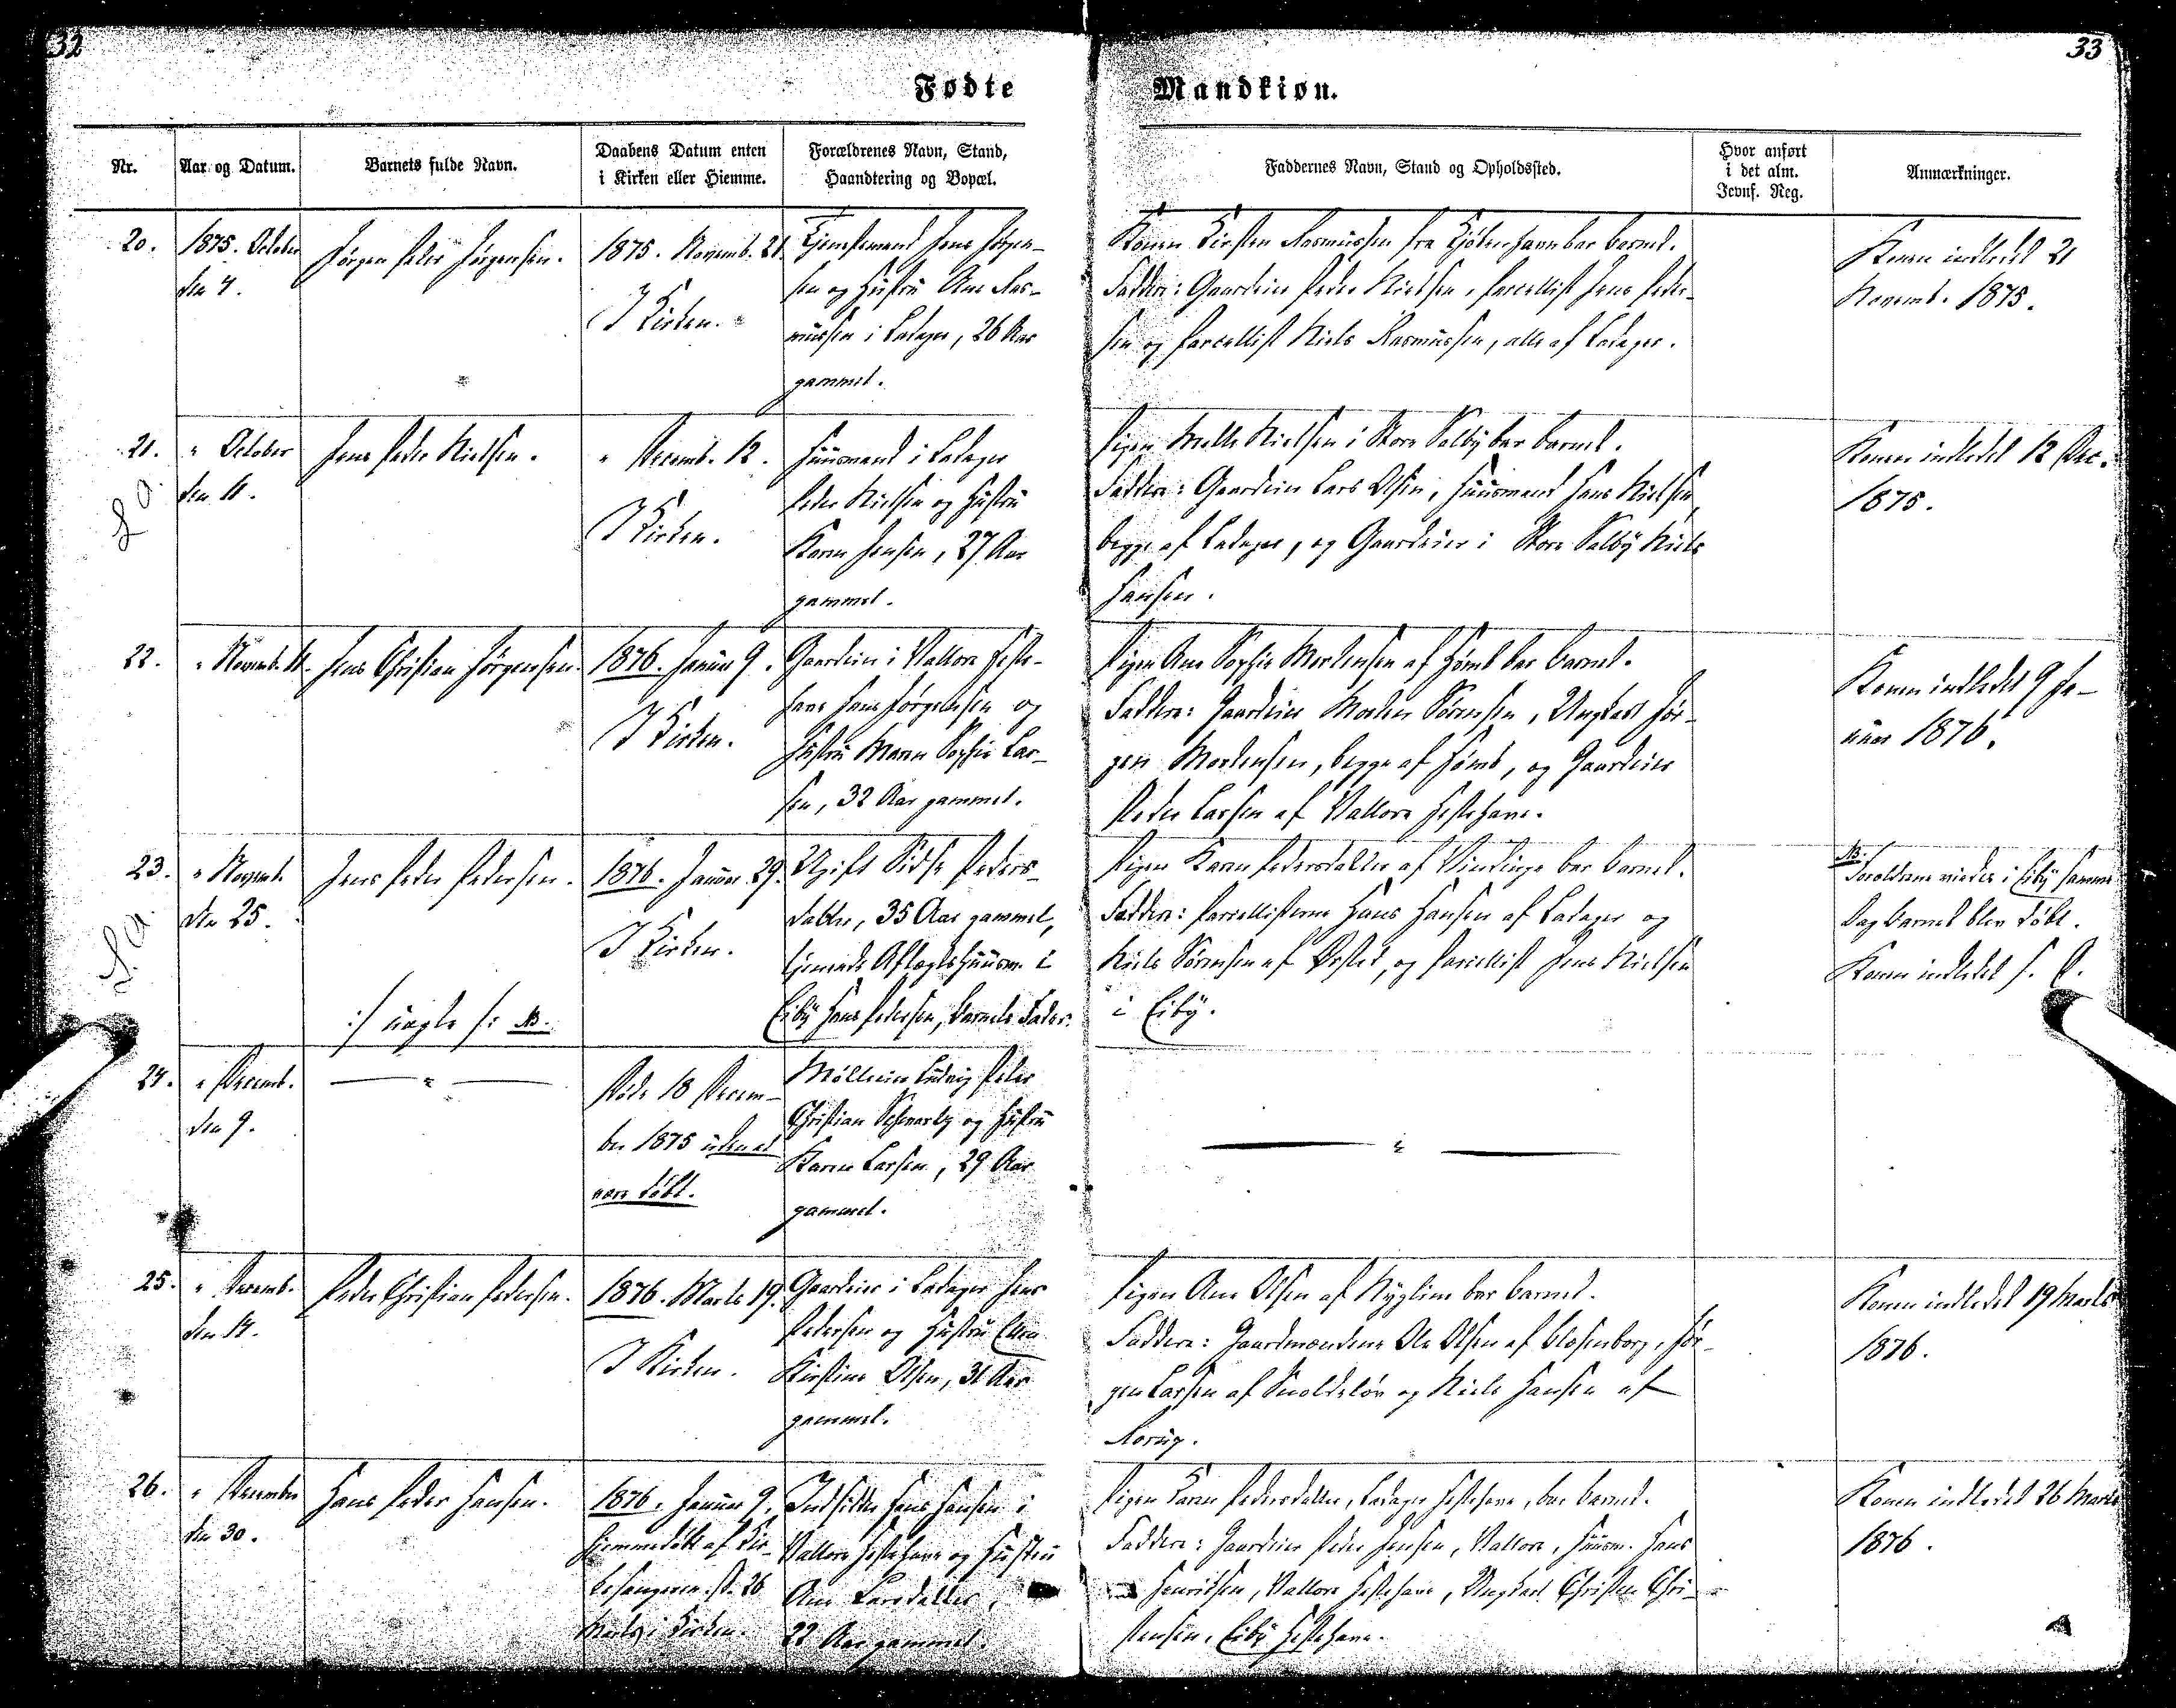 32
33
Fødte
Mandkiøn.
Nr.
Aar og Datum.
Barnets fulde Navn.
Daabens Datum enten
i Kirken eller Hiemme.
Forældrenes Navn, Stand,
Haandtering og Bopæl.
Faddernes Navn, Stand og Opholdssted.
Hvor anført
i det alm.
Jevnf. Reg.
Anmærkninger.
20.
1875. October
den 4.
Jørgen Peder Jørgensen.
1875. Novemb. 21
I Kirken.
Tjenestemand Jens Jørgen-
sen og Hustru Ane Ras-
mussen i Ladager, 26 Aar
gammel.
Konen Kirsten Rasmussen fra Kjøbenhavn bar Barnet.
Faddere: Gaardeier Peder Nielsen, Parcellist Jens Peder-
sen og Parcellist Niels Rasmussen, alle af Ladager.
Konen indledet 21
Novemb. 1875.
21.
" October
den 11.
Jens Peder Nielsen.
" Decemb. 12.
I Kirken.
Huusmand i Ladager
Peder Nielsen og Hustru
Karen Jensen, 27 Aar
gammel.
Pigen Mette Nielsen i Store Salby bar Barnet.
Faddere: Gaardeier Lars Olsen, Huusmand Hans Nielsen,
begge af Ladager, og Gaardeier i Store Salby Niels
Hansen.
Konen indledet 12 Dec.
1875.
22.
" Novemb. 14.
Jens Christian Jørgensen.
1876. Januar 9.
I Kirken.
Gaardeier i Vallore Heste-
have Hans Jørgensen og
Hustru Maren Sophie Lar-
sen, 32 Aar gammel.
Pigen Ane Sophie Mortensen af bar Barnet.
Faddere: Gaardeier Morten Sørensen, Ungkarl Jør-
gen Mortensen, begge af og Gaardeier
Peder Larsen af Vallore Hestehave.
Konen indledet 9 Ja-
nuar 1876.
23.
" Novemb.
den 25.
Jens Peder Pedersen.
:/ uægte /: NB.
1876. Januar 29.
I Kirken.
Ugift Sidse Peders-
datter, 35 Aar gammel,
tjenende Aftægtshuusm. i
Eiby Hans Pedersen, Barnets Fader.
Pigen Karen Pedersdatter af Vindinge bar Barnet.
Faddere: Parcellisterne Hans Hansen af Ladager og
Niels Sørensen af Ørsted, og Parcellist Jens Nielsen
i Eiby.
NB.
Forældrene viedes i Eiby samme
Dag Barnet blev døbt.
Konen indledet s. D.
24.
" Decemb.
den 9.
— " —
Døde 18 Decem-
ber 1875 uden at
være døbt.
Mølleeier Ludvig Peter
Christian Schwartz og Hustru
Karen Larsen, 29 Aar
gammel.
— " —
25.
" Decemb.
den 14.
Peder Christian Pedersen.
1876. Marts 19.
I Kirken.
Gaardeier i Ladager Jens
Pedersen og Hustru Ellen
Kirstine Olsen, 31 Aar
gammel.
Pigen Ane Olsen af bar Barnet.
Faddere: Gaardmændene Ole Olsen af Clasenborg, Jør-
gen Larsen af Snoldeløv og Niels Hansen af
Rorup.
Konen indledet 19 Marts
1876.
26.
" December
den 30.
Hans Peder Hansen.
1876. Januar 9,
hjemmedøbt af Kir-
kesangeren, 26
Marts i Kirken.
Indsidder Hans Hansen i
Vallore Hestehave og Hustru
Ane Larsdatter,
22 Aar gammel.
Pigen Karen Pedersdatter, Ladager Hestehave, bar Barnet.
Faddere: Gaardeier Peder Jensen, Vallore, Huusm. Hans
Henriksen, Vallore Hestehave, Ungkarl Christen Chri-
stensen, Eiby Hestehave.
Konen indledet 26 Marts
1876.